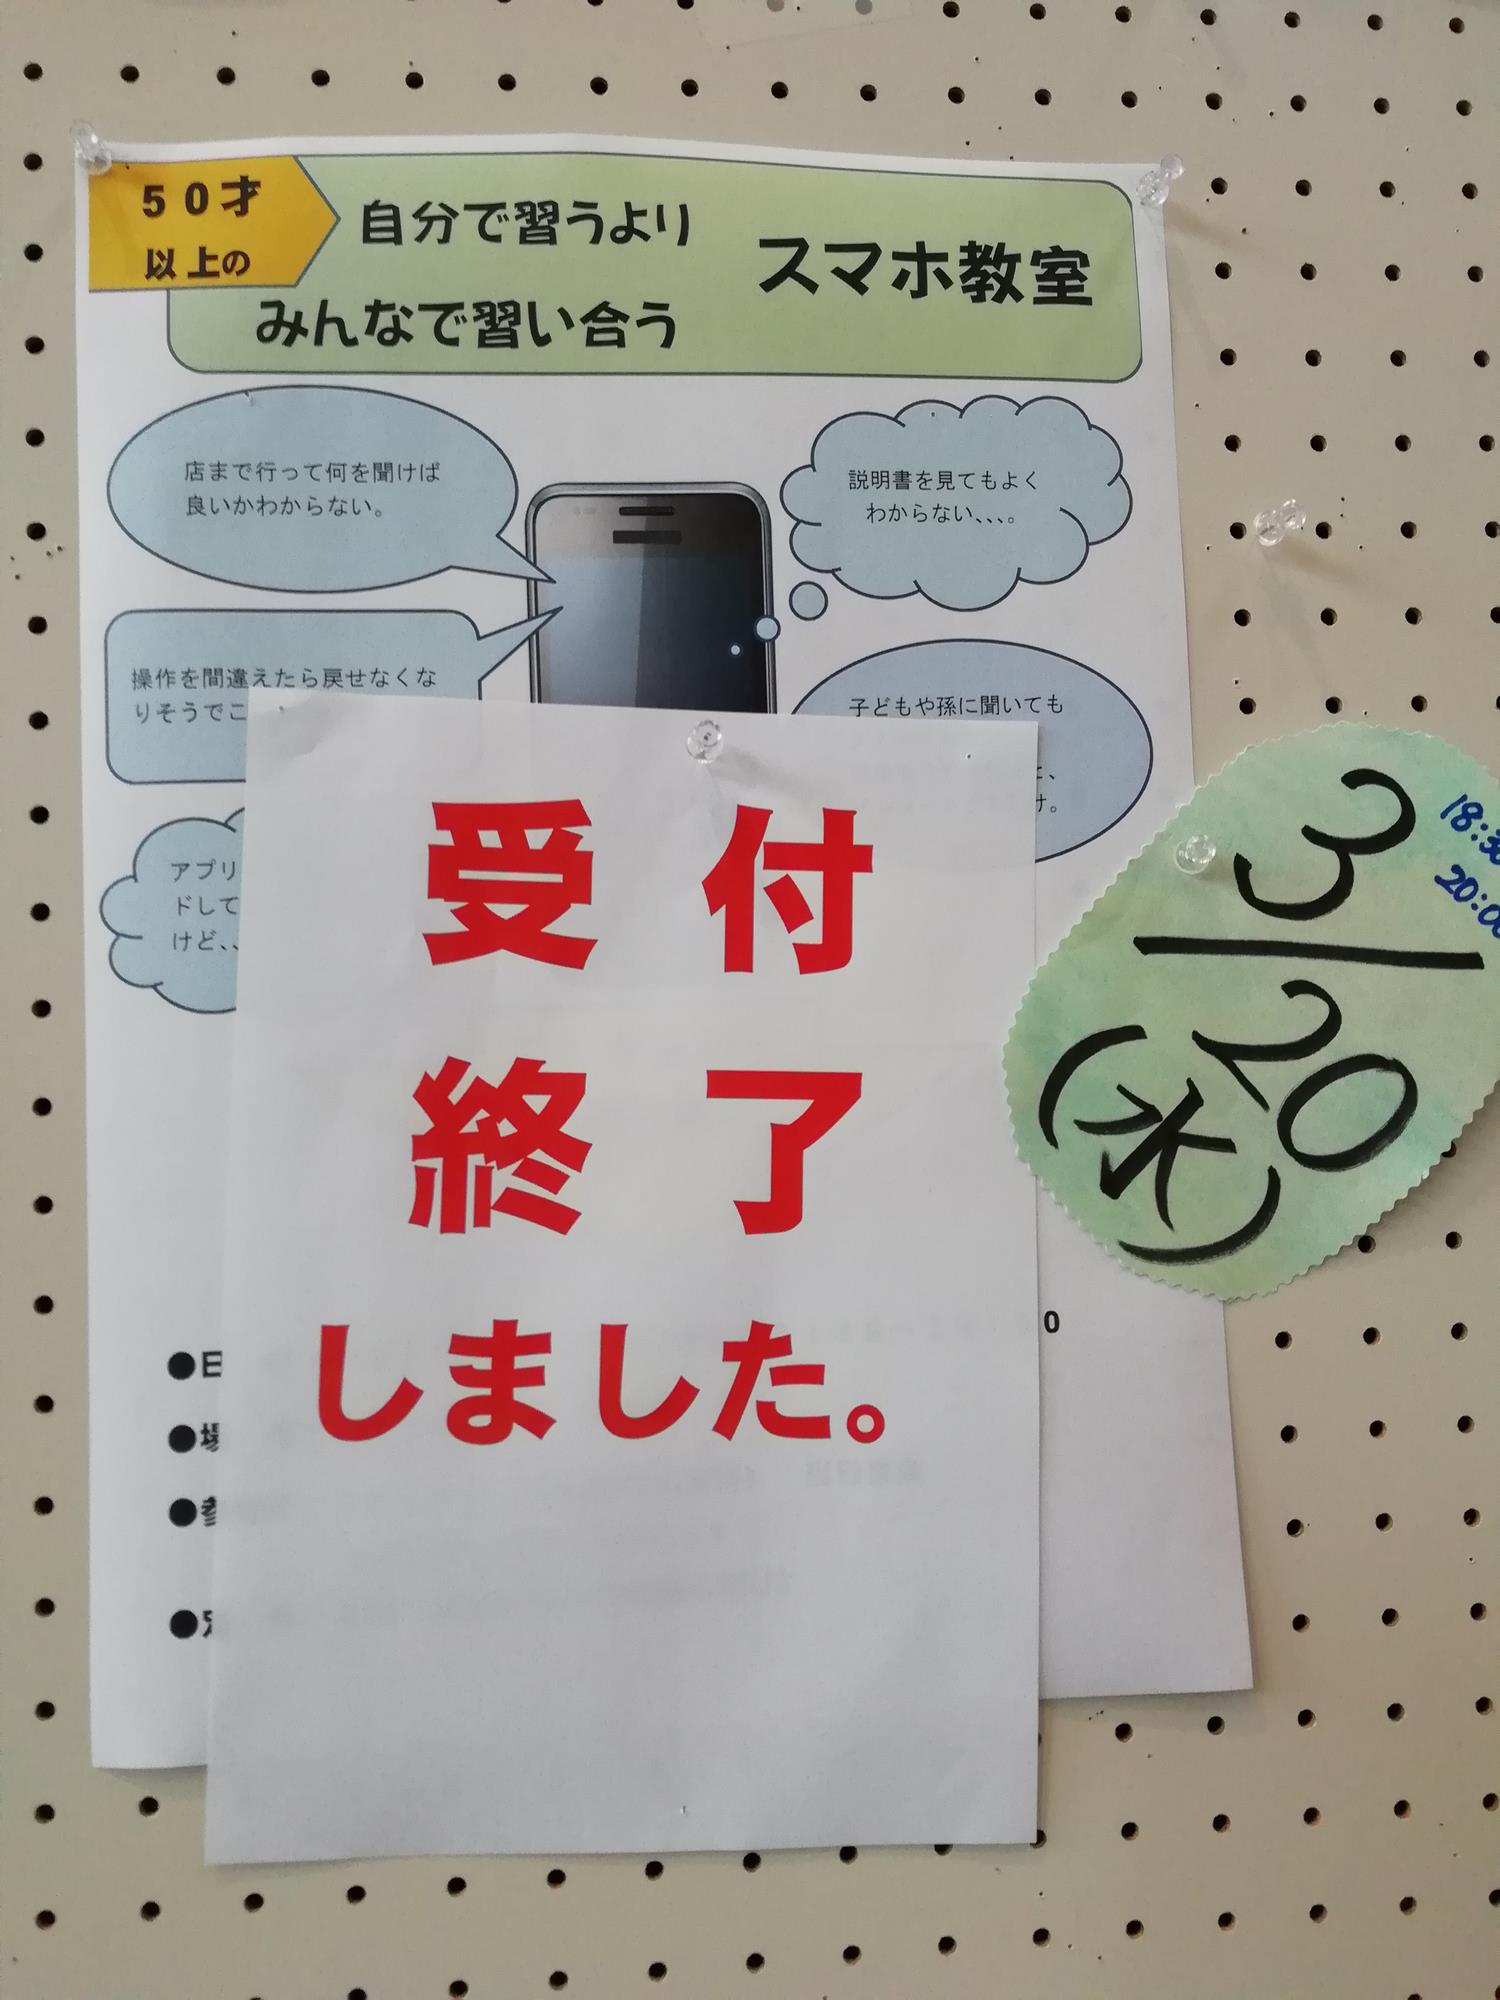 50才
以上の
自分で習うより
みんなで習い合う
スマホ教室
店まで行って何を聞けば
良いかわからない。
説明書を見てもよく
わからない、、、。
操作を間違えたら戻せなくな
りそうでこ
子どもや孫に聞いても
アプリ
ドして
けど、、
け。
受付
終了
しました。
3/20
(水)
18:30
20:00
0
●日
●場
●参